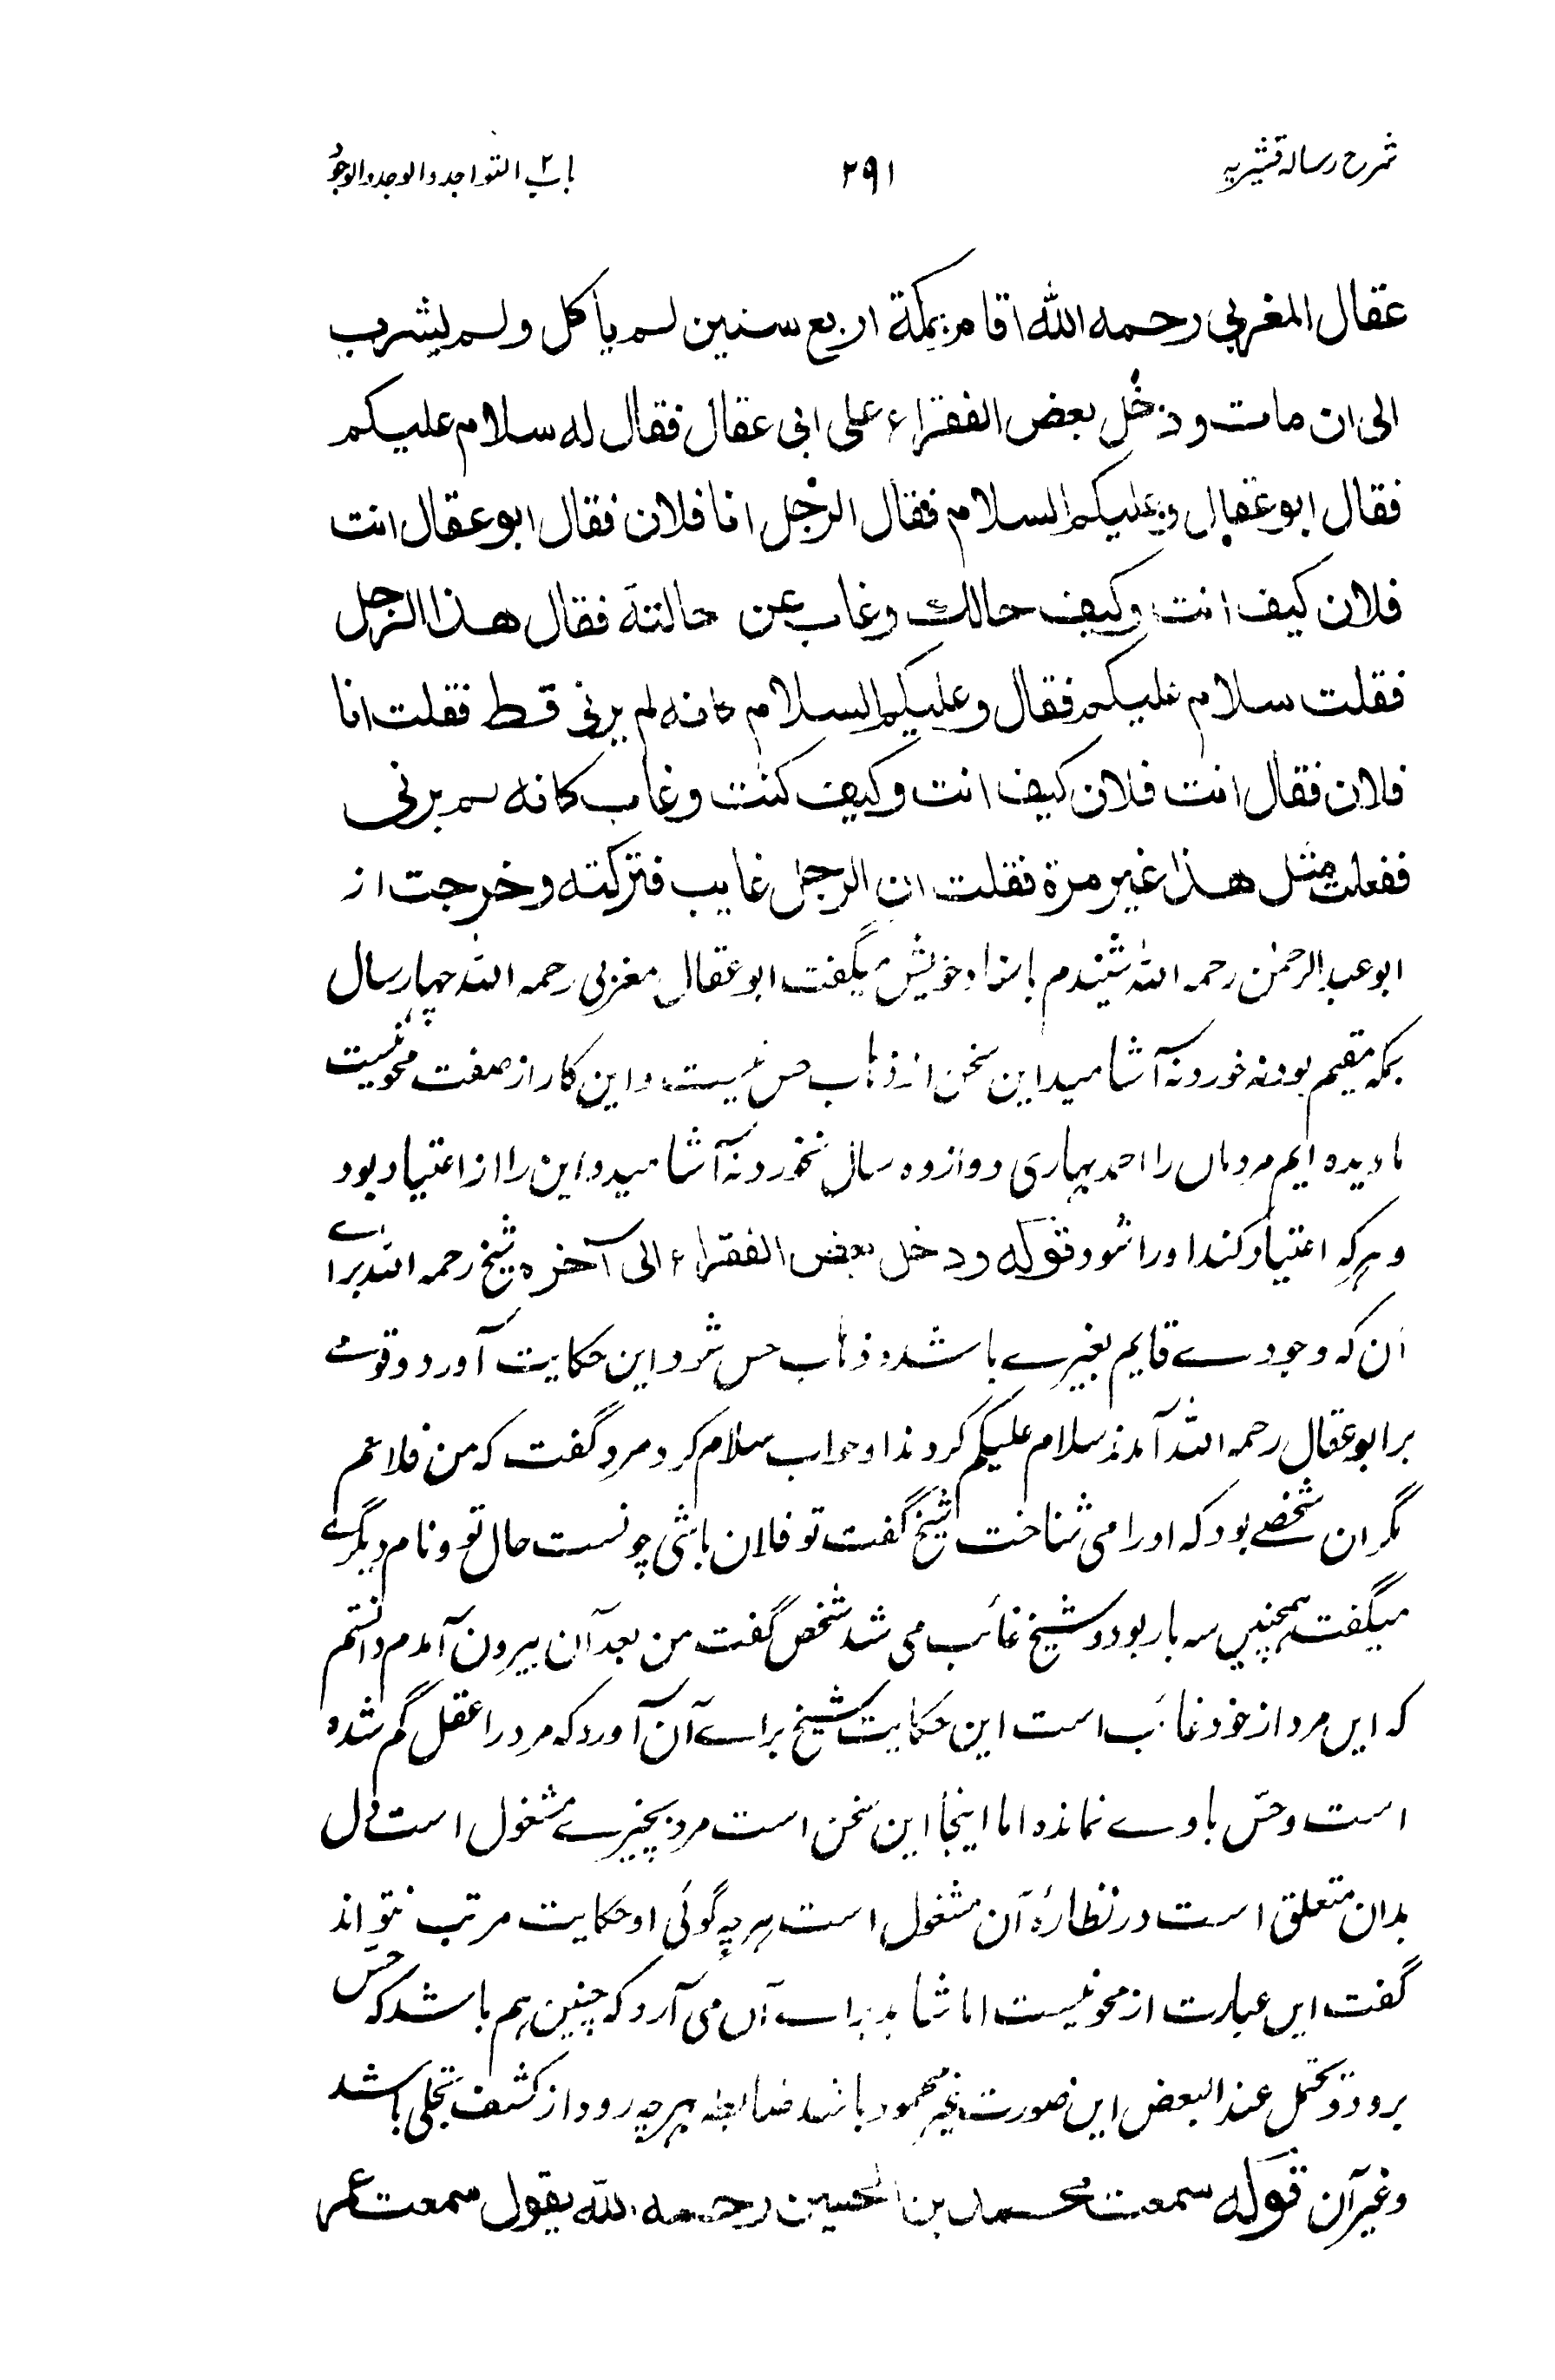 شرح رسالہ قشیریہ
۲۹۱
باب ۲ التواجد والوجد والوجود
عقال المغربی رحمه الله اقام بمکة اربع سنین لم یأکل ولم یشرب
الی ان مات ودخل بعض الفقراء علی ابی عقال فقال له سلام علیکم
فقال ابو عقال وعلیکم السلام فقال الرجل انا فلان فقال ابو عقال انت
فلان کیف انت وکیف حالك وغاب عن حالته فقال هذا الرجل
فقلت سلام علیکم فقال وعلیکم السلام کانه لم یرنی قط فقلت انا
فلان فقال انت فلان کیف انت وکیف کنت وغاب کانه لم یرنی
ففعلت مثل هذا غیر مرة فقلت ان الرجل غایب فترکته وخرجت از
ابو عبدالرحمٰن رحمه الله شنیدم باسناد خویش میگفت ابو عقال مغربی رحمه الله چهار سال
بمکه مقیم بود نه خورد نه آشامید این سخن از ذهاب حس نیست و این کار از صفت محو نیست
ما دیده ایم مردمان را احمد بهاری دوازده سال نخورد نه آشامید و این را از اعتیاد بود
و هرکه اعتیاد کند او را شود قوله ودخل بعض الفقراء الی آخره شیخ رحمه الله برائے
آن که وجودے قایم بغیرے باشد و ذهاب حس شرد این حکایت آورد و قومے
بر ابو عقال رحمه الله آمدند سلام علیکم کردند او جواب سلام کرد مرد گفت که من فلانم
مگر ان شخصے بود که او را می شناخت شیخ گفت تو فلان باشی چونست حال تو و نام دیگرے
میگفت همچنیں سه بار بود و شیخ غائب می شد شخص گفت من بعد آن بیرون آمدم دانستم
که ایں مرد از خود غائب است این حکایت شیخ براے آن آورد که مرد را عقل گم شده
است و حسّ باوے نمانده اما اینجا این سخن است مرد بچیزے مشغول است دل
بدان متعلق است در نظارۂ آن مشغول است هرچه گوئی او حکایت مرتب نتواند
گفت ایں عبارت از محو نیست اما شاید براے آں می آرد که چنین هم باشد که حسّ
برود عند البعض این صورت غیر محمود باشد ضابطه هرچه رود از کشف تجلی باشد
و غیر آن قوله سمعت محمد بن الحسین رحمه الله یقول سمعت عمر